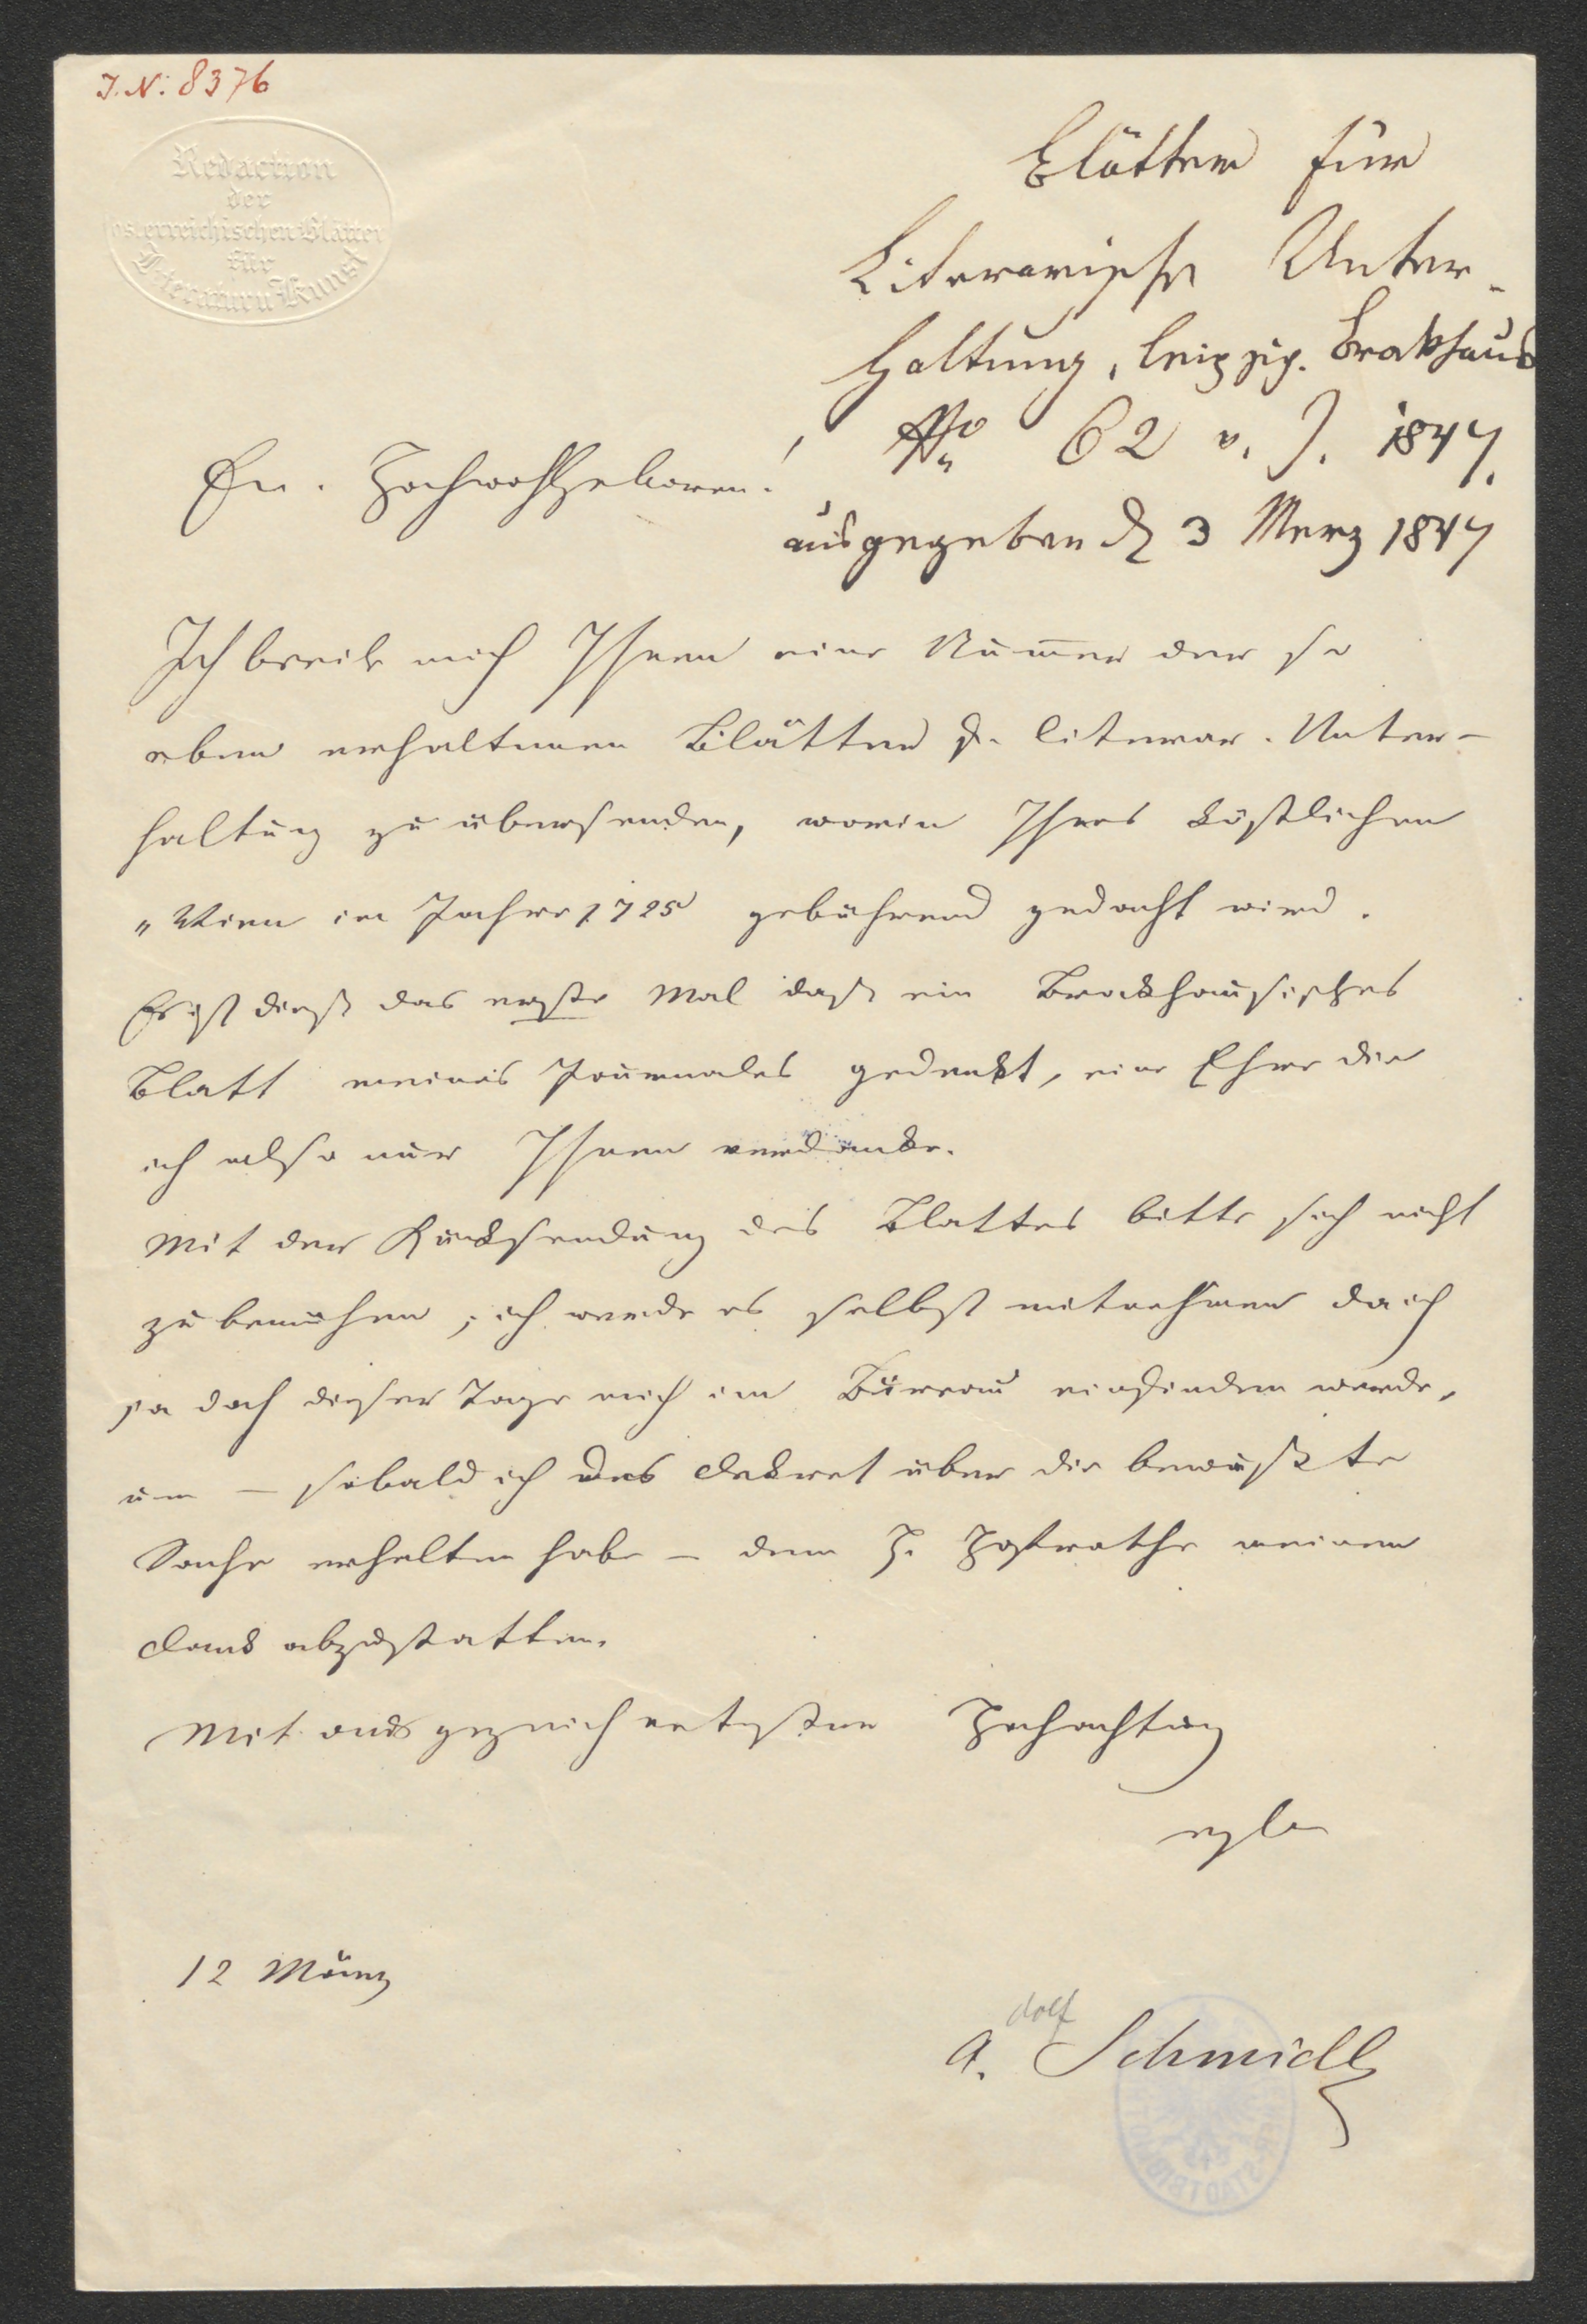 J. N: 8376
Redaction
der
österreichischen Blätter
für
Literatur u Kunst
Blätter für
Literarische Unter-
haltung, Leipzig. Brokhaus
No 62 v. J. 1847.
ausgegeben d 3 Merz 1847
Eu. Hochwohlgeboren!
Ich beeile mich Ihnen eine Num̅er der so
eben erhaltenen Blätter f. literar. Unter-
haltung zu übersenden, worin Ihres köstlichen
„Wien im Jahre 1725 gebührend gedacht wird.
Es ist dieß das erste Mal daß ein Brockhausisches
Blatt meines Journales gedenkt, eine Ehre die
ich also nur Ihnen verdanke.
Mit der Rücksendung des Blattes bitte sich nicht
zu bemühen, ich werde es selbst mitnehmen da ich
ja doch dieser Tage mich im Büreau einfinden werde,
um – sobald ich das Dekret über die bewußte
Sache erhalten habe – dem H. Hofrathe meinen
Dank abzustatten.
Mit ausgezeichnetester Hochachtung
12 März
dolf
A. Schmidl